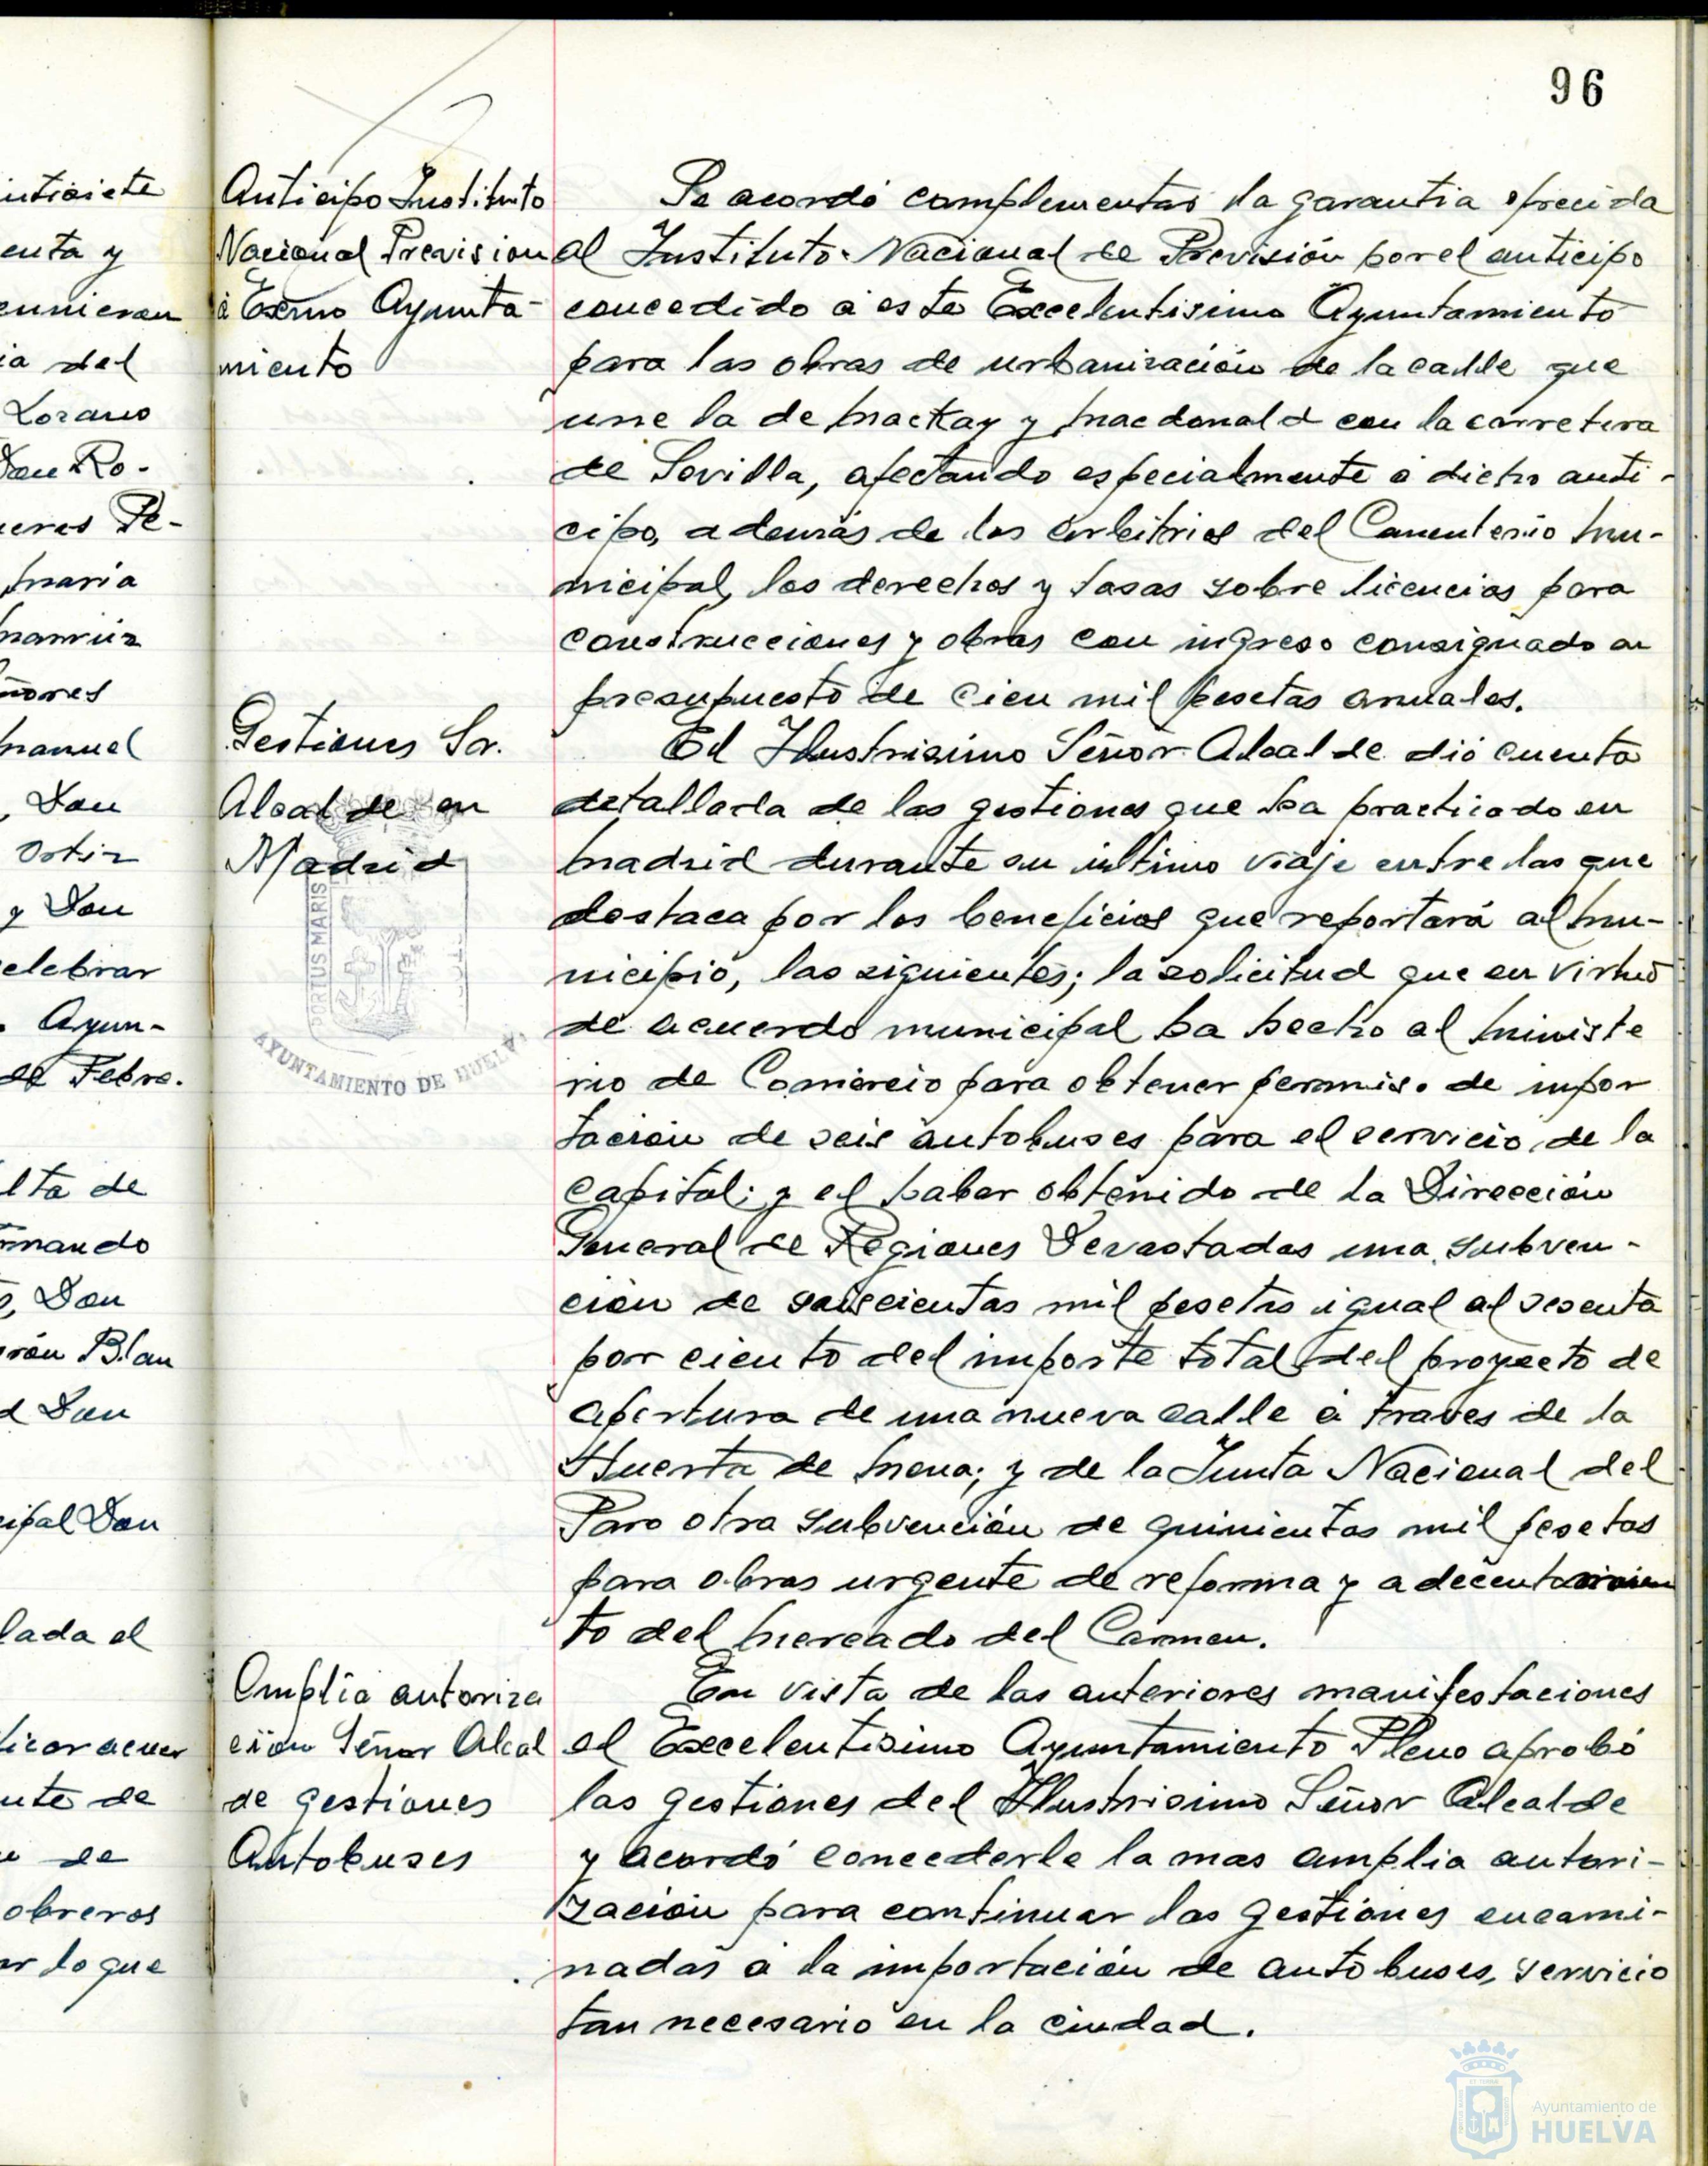 96
intisiete
enta y
eunieran
ia del
Lozano
Don Ro-
ueros Pe-
maria
ñores
manuel
, Don
Ortiz
y Don
elebrar
. Ayun-
de Febre.
lta de
rnando
, Don
rón Blan
d Don
cipal Don
lada el
ticar acuer
nte de
de
obreros
ar lo que
Anticipo Instituto
Nacional Prevision
á Excmo Ayunta-
miento
Se acordó complementar la garantia ofrecida
al Instituto Nacional de Previsión por el anticipo
concedido á este Excelentisimo Ayuntamiento
para las obras de urbanización de la calle que
une la de Mackay y Macdonald con la carretera
de Sevilla, afectando especialmente á dicho anti-
cipo, además de los arbitrios del Cementerio Mu-
nicipal, los derechos y tasas sobre licencias para
construcciones y obras con ingreso consignado en
presupuesto de cien mil pesetas anuales.
Gestiones Sr.
Alcalde en
Madrid
PORTUS MARIS
AYUNTAMIENTO DE HUELVA
El Ilustrisimo Señor Alcalde dió cuenta
detallada de las gestiones que ha practicado en
Madrid durante su último viaje entre las que
destaca por los beneficios que reportará al Mu-
nicipio, las siguientes; la solicitud que en virtud
de acuerdo municipal ha hecho al Ministe
rio de Comercio para obtener permiso de impor
tación de seis autobuses para el servicio de la
Capital; y el haber obtenido de la Dirección
General de Regiones Devastadas una subven-
ción de seiscientas mil pesetas igual al sesenta
por ciento del importe total del proyecto de
apertura de una nueva calle á traves de la
Huerta de Mena; y de la Junta Nacional del
Paro otra subvención de quinientas mil pesetas
para obras urgente de reforma y adecentamien
to del Mercado del Carmen.
Amplia autoriza
ción Señor Alcal
de gestiones
Autobuses
En vista de las anteriores manifestaciones
el Excelentisimo Ayuntamiento Pleno aprobó
las gestiones del Ilustrisimo Señor Alcalde
y acordó concederle la mas amplia autori-
zación para continuar las gestiones encami-
nadas á la importación de autobuses, servicio
tan necesario en la ciudad.
Ayuntamiento de
HUELVA